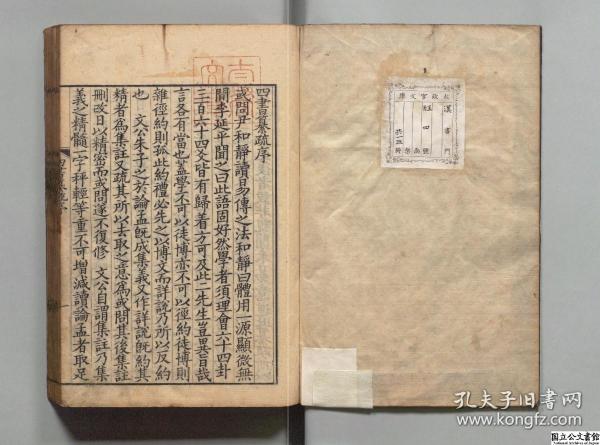 四書纂疏序
或問尹和靜讀易傳之法和靜曰體用一源顯微無
間李延平聞之曰此語固好然學者須理會六十四卦
三百六十四爻皆有歸着方可及此二先生豈異旨哉
言各有當也蓋學不可以徒博亦不可以徑約徒博則
雜徑約則孤此約禮必先之以博文而詳說乃所以反約
也 文公朱子之於論孟既成集義又作詳說既約其
精者為集註又疏其所以去取之意為或問其後集註
刪改日以精密而或問遂不復修 文公自謂集註乃集
義之精髓一字秤輕等重不可增減讀論孟者取足
太政官文庫
漢書門
孔夫子旧书网
国立公文書館
National Archives of Japan